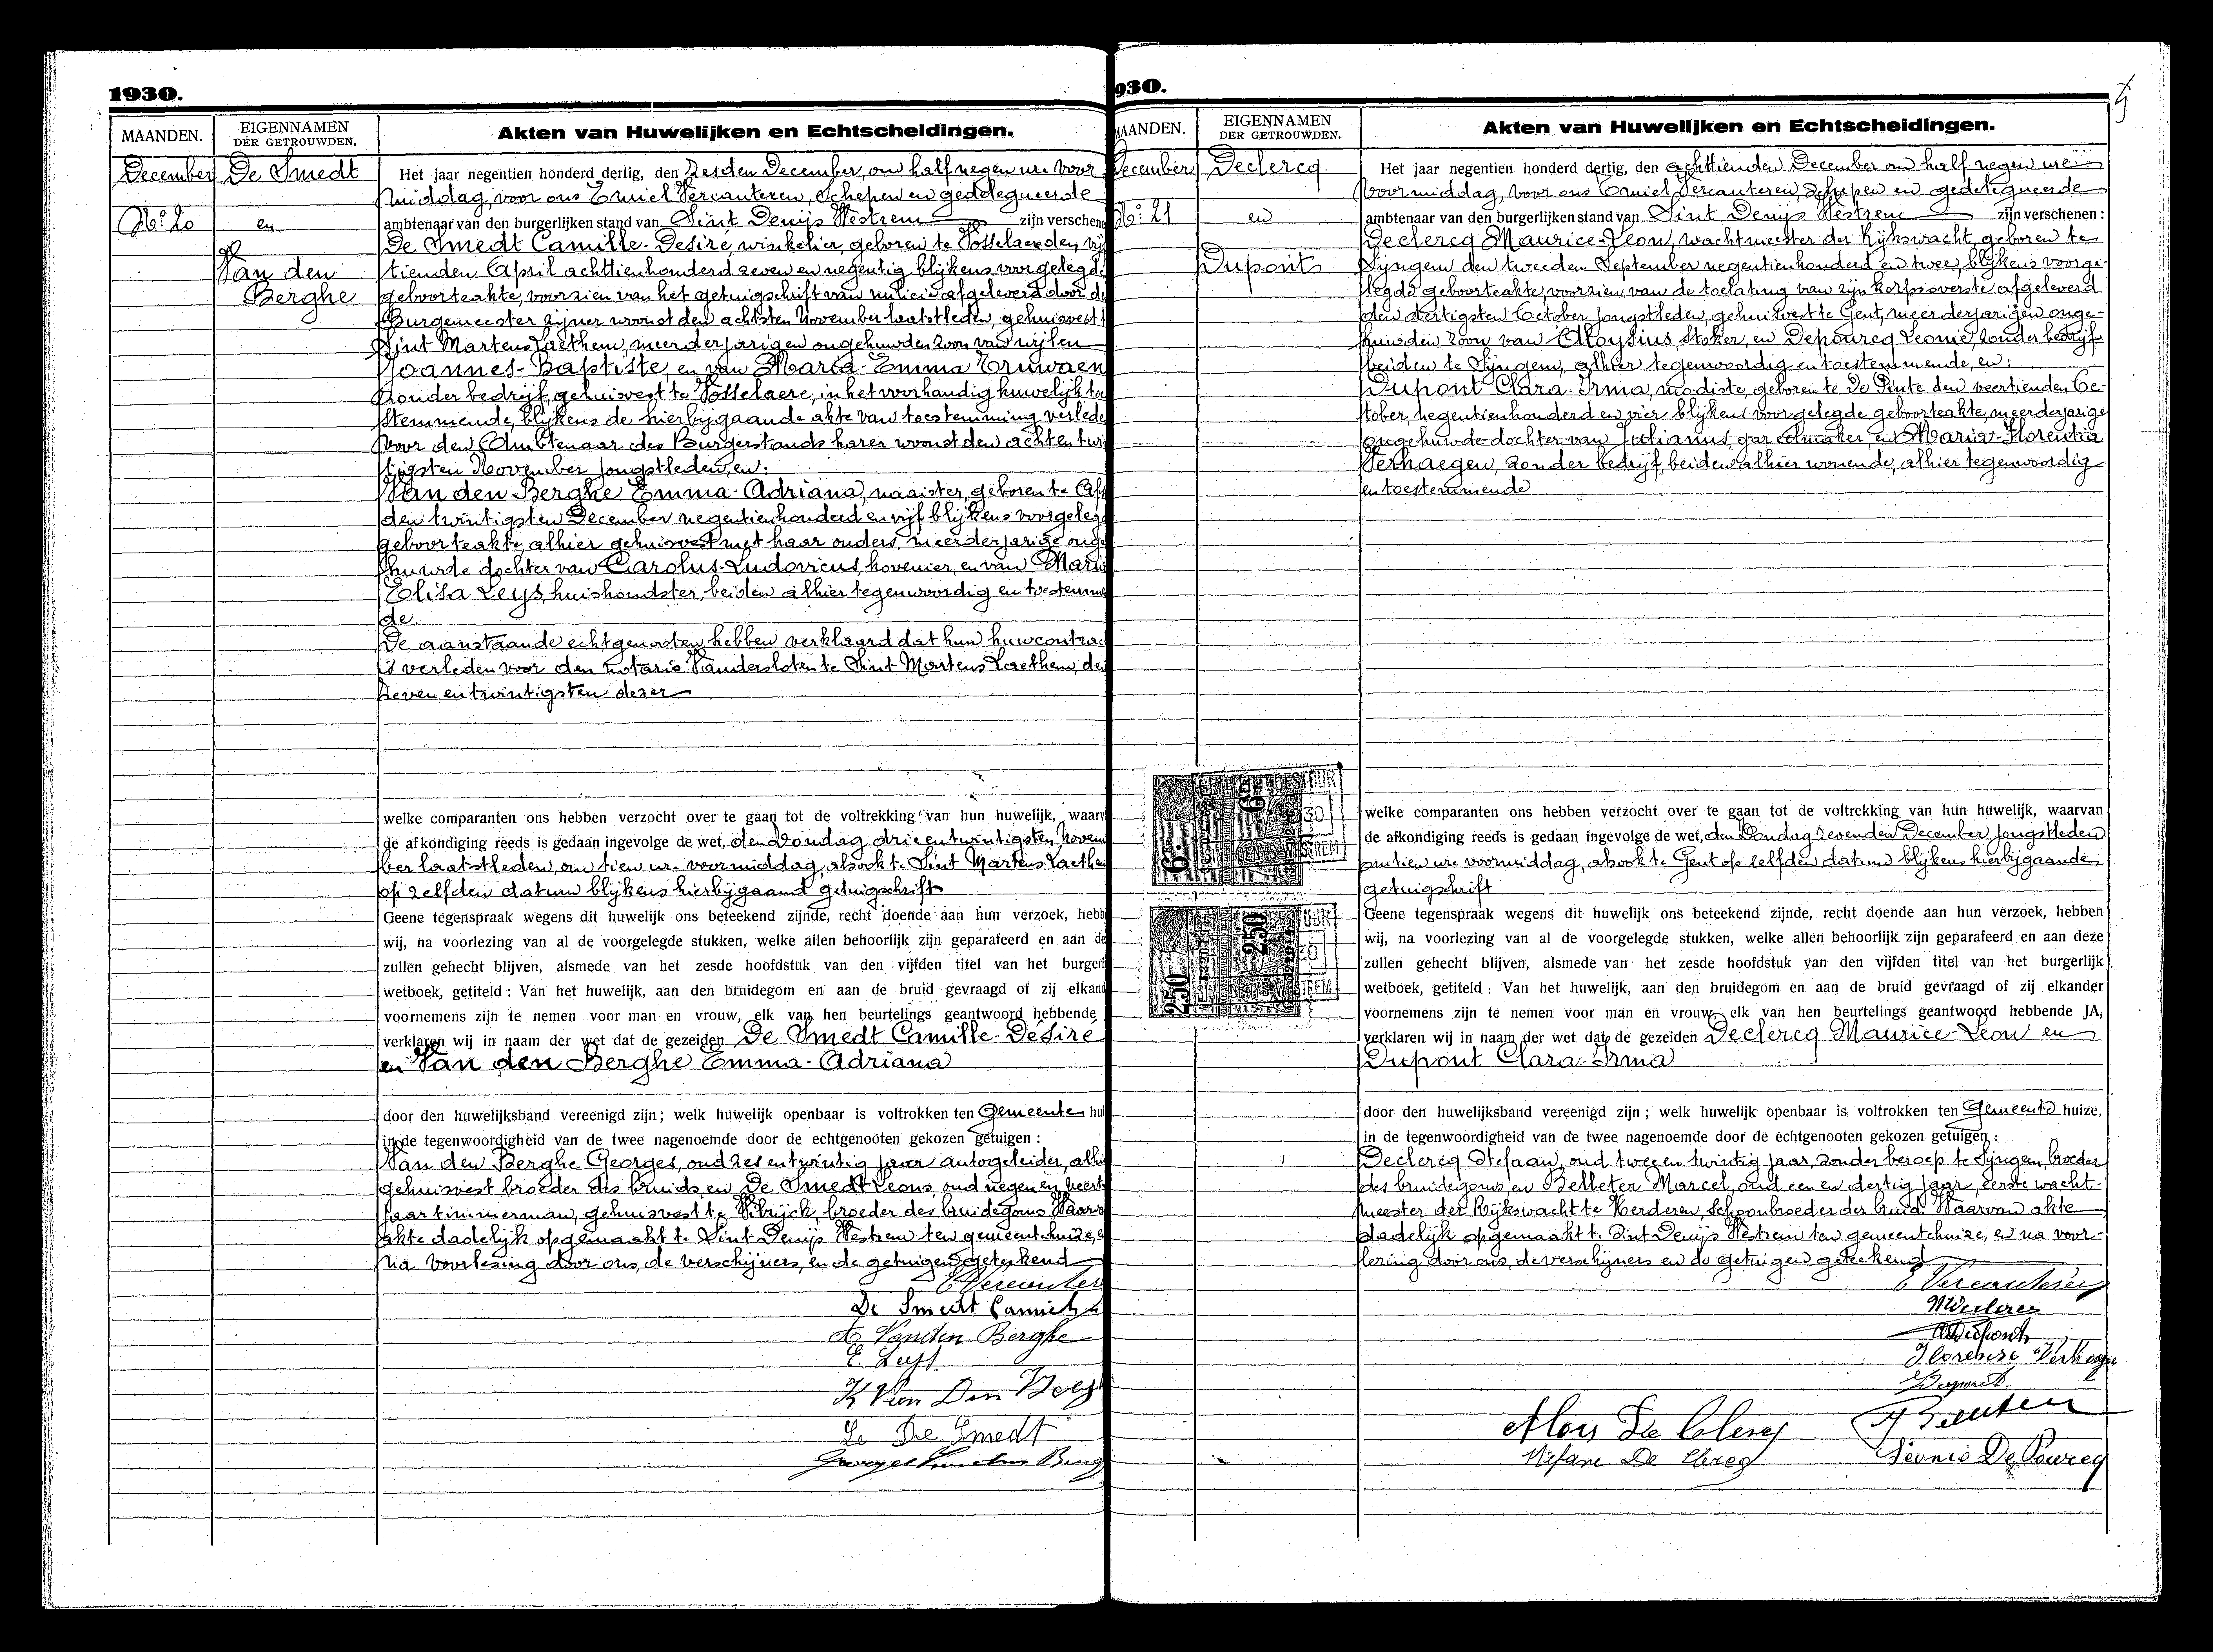 1930.
MAANDEN.
EIGENNAMEN
DER GETROUWDEN.
Akten van Huwelijken en Echtscheidingen.
December
No: 20
De Smedt
en
Van den
Berghe
Het jaar negentien honderd dertig, den Zesden December, om half negen ure voor
middag, voor ons Emiel Vercauteren, Schepen en gedelegueerde
ambtenaar van den burgerlijken stand van Sint Denijs Westrem zijn verschene
De Smedt Camille-Desiré, winkelier, geboren te Vosselaere den vij
tienden April achttienhonderd zeven en negentig blijkens voorgelegde
geboorteakte, voorzien van het getuigschrift van milicie afgeleverd door de
Burgemeester zijner woonst den achtsten November laatstleden, gehuisvest t
Sint Martens Laethem, meerderjarigen ongehuwden zoon van wijlen
Joannes-Baptiste, en van Maria-Emma Cruwaen
zonder bedrijf, gehuisvest te Vosselaere, in het voorhandig huwelijk toe
stemmende, blijkens de hierbijgaande akte van toestemming verlede
voor den Ambtenaar des Burgerstands harer woonst den acht en twin
tigsten November jongstleden, en:
Van den Berghe Emma-Adriana, naaister, geboren te Af
den twintigsten December negentienhonderd en vijf blijkens voorgelegd
geboorteakte, alhier gehuisvest met haar ouders, meerderjarige onge
huwde dochter van Carolus-Ludovicus, hovenier, en van Maria
Elisa Leys, huishoudster, beiden alhier tegenwoordig en toestemmen
de.
De aanstaande echtgenooten hebben verklaard dat hun huwcontrac
is verleden voor den notaris Vandersloten te Sint Martens Laethem, den
zeven en twintigsten dezer
welke comparanten ons hebben verzocht over te gaan tot de voltrekking van hun huwelijk, waarv
de afkondiging reeds is gedaan ingevolge de wet, den Zondag drie en twintigsten Novem
ber laatstleden, om tien ure voormiddag, alsook te Sint Martens Laethem
op zelfden datum blijkens hierbijgaand getuigschrift
Geene tegenspraak wegens dit huwelijk ons beteekend zijnde, recht doende aan hun verzoek, hebb
wij, na voorlezing van al de voorgelegde stukken, welke allen behoorlijk zijn geparafeerd en aan de
zullen gehecht blijven, alsmede van het zesde hoofdstuk van den vijfden titel van het burgerl
wetboek, getiteld : Van het huwelijk, aan den bruidegom en aan de bruid gevraagd of zij elkand
voornemens zijn te nemen voor man en vrouw, elk van hen beurtelings geantwoord hebbende
verklaren wij in naam der wet dat de gezeiden De Smedt Camille-Désiré
en Van den Berghe Emma-Adriana
door den huwelijksband vereenigd zijn ; welk huwelijk openbaar is voltrokken ten Gemeente hui
in de tegenwoordigheid van de twee nagenoemde door de echtgenooten gekozen getuigen :
Van den Berghe Georges, oud zes en twintig jaar autogeleider, alhier
gehuisvest broeder des bruids, en De Smedt Leons, oud negen en veert
jaar timmerman, gehuisvest te Wilrijck, broeder des bruidegoms. Waarva
akte dadelijk opgemaakt te Sint Denijs Westrem ten gemeentehuize, e
na voorlezing door ons, de verschijners, en de getuigen geteekend
E Vercauter
De Smedt Camiel
A. Vanden Berghe
E. Leys
K Van Den Berg
Le De Smedt
Georges Van den Berg
930.
MAANDEN.
EIGENNAMEN
DER GETROUWDEN.
Akten van Huwelijken en Echtscheidingen.
December
No: 21
Declercq
en
Dupont
Het jaar negentien honderd dertig, den achttienden December om half negen ure
voormiddag, voor ons Emiel Vercauteren, Schepen en gedelegueerde
ambtenaar van den burgerlijken stand van Sint Denijs Westrem zijn verschenen :
Declercq Maurice-Leon, wachtmeester der Rijkswacht, geboren te
Syngem den tweeden September negentienhonderd en twee, blijkens voorge-
legde geboorteakte, voorzien van de toelating van zijn korpsoverste afgeleverd
den dertigsten October jongstleden, gehuisvest te Gent, meerderjarigen onge-
huwden zoon van Aloysius, stoker, en Depourcq Leonie, zonder bedrijf
beiden te Syngem, alhier tegenwoordig en toestemmende, en:
Dupont Clara-Irma, modiste, geboren te De Pinte den veertienden Oc-
tober, negentienhonderd en vier blijkens voorgelegde geboorteakte, meerderjarige
ongehuwde dochter van Julianus, gareelmaker, en Maria-Florentia
Verhaegen, zonder bedrijf, beiden alhier wonende, alhier tegenwoordig
en toestemmende
6 Fr
6
250
2.50
welke comparanten ons hebben verzocht over te gaan tot de voltrekking van hun huwelijk, waarvan
de afkondiging reeds is gedaan ingevolge de wet, den Zondag zevenden December jongstleden
om tien ure voormiddag, alsook te Gent op zelfden datum blijkens hierbijgaande
getuigschrift
Geene tegenspraak wegens dit huwelijk ons beteekend zijnde, recht doende aan hun verzoek, hebben
wij, na voorlezing van al de voorgelegde stukken, welke allen behoorlijk zijn geparafeerd en aan deze
zullen gehecht blijven, alsmede van het zesde hoofdstuk van den vijfden titel van het burgerlijk
wetboek, getiteld : Van het huwelijk, aan den bruidegom en aan de bruid gevraagd of zij elkander
voornemens zijn te nemen voor man en vrouw, elk van hen beurtelings geantwoord hebbende JA,
verklaren wij in naam der wet dat de gezeiden Declercq Maurice-Leon en
Dupont Clara-Irma
door den huwelijksband vereenigd zijn ; welk huwelijk openbaar is voltrokken ten Gemeente huize,
in de tegenwoordigheid van de twee nagenoemde door de echtgenooten gekozen getuigen :
Declercq Stefaan, oud twee en twintig jaar, zonder beroep te Syngem, broeder
des bruidegoms, en Belleter Marcel, oud een en dertig jaar, eerste wacht-
meester der Rijkswacht te Verderen, Schoonbroeder der bruid. Waarvan akte
dadelijk opgemaakt te Sint Denijs Westrem ten gemeentehuize, en na voor-
lezing door ons, de verschijners en de getuigen geteekend
E Vercauteren
MDeclercq
CDupont
Florensie Verhaege
Dupont
Alois De Clercq
Stefane De Clercq
Leonie De Pourcq